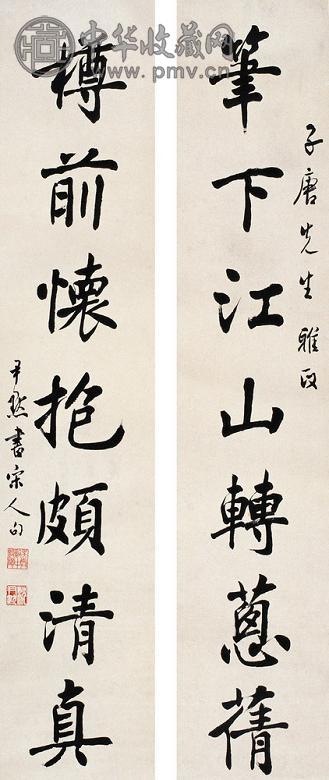 中华收藏网
www.pmv.cn
子唐先生雅政
筆下江山轉蔥蒨
樽前懷抱頗清真
尹默書宋人句